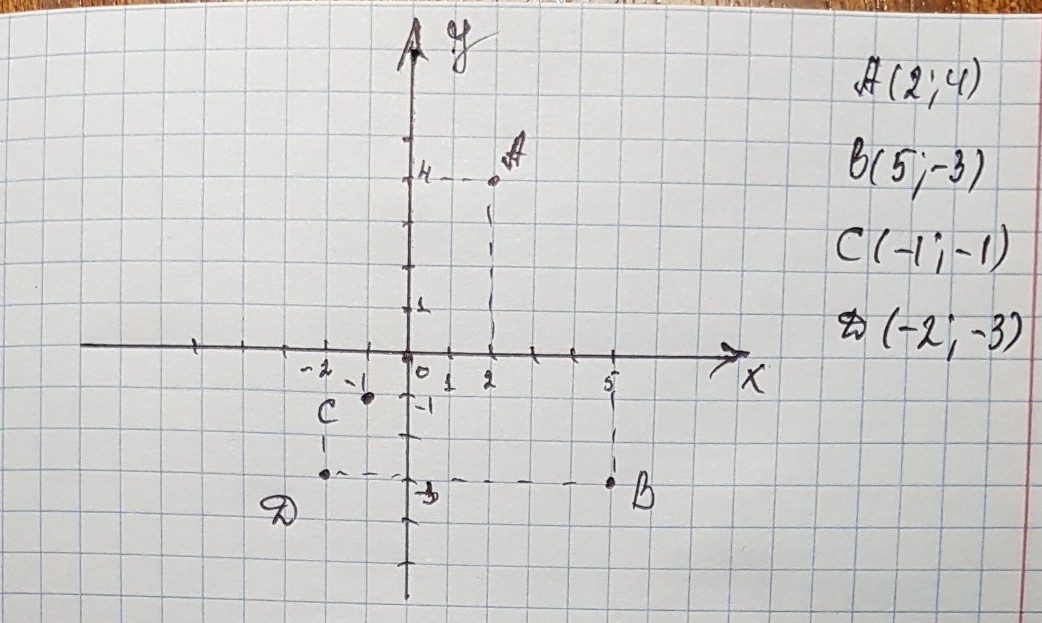 y
A
4
1
-2 -1 0 1 2 5 x
C -1
-3
D B
A(2;4)
B(5;-3)
C(-1;-1)
D(-2;-3)